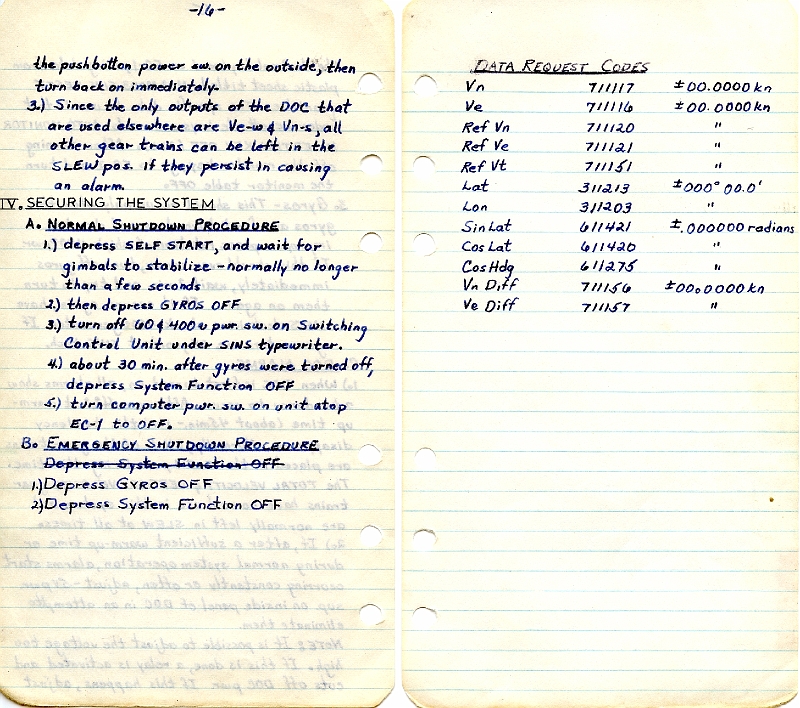 -16-
the pushbutton power sw. on the outside, then
turn back on immediately.
3.) Since the only outputs of the DOC that
are used elsewhere are Ve-w & Vn-s, all
other gear trains can be left in the
SLEW pos. if they persist in causing
an alarm.
IV. SECURING THE SYSTEM
A. NORMAL SHUTDOWN PROCEDURE
1.) depress SELF START, and wait for
gimbals to stabilize - normally no longer
than a few seconds
2.) then depress GYROS OFF
3.) turn off 60 & 400 υ pwr. sw. on Switching
Control Unit under SINS typewriter.
4.) about 30 min. after gyros were turned off,
depress System Function OFF
5.) turn computer pwr. sw. on unit atop
EC-1 to OFF.
B. EMERGENCY SHUTDOWN PROCEDURE
Depress System Function OFF
1.) Depress GYROS OFF
2) Depress System Function OFF
DATA REQUEST CODES
Vn 711117 ±00.0000 kn
Ve 711116 ±00.0000 kn
Ref Vn 711120 "
Ref Ve 711121 "
Ref Vt 711151 "
Lat 311213 ±000° 00.0'
Lon 311203 "
Sin Lat 611421 ±.000000 radians
Cos Lat 611420 "
Cos Hdg 611275 "
Vn Diff 711156 ±00.0000 kn
Ve Diff 711157 "